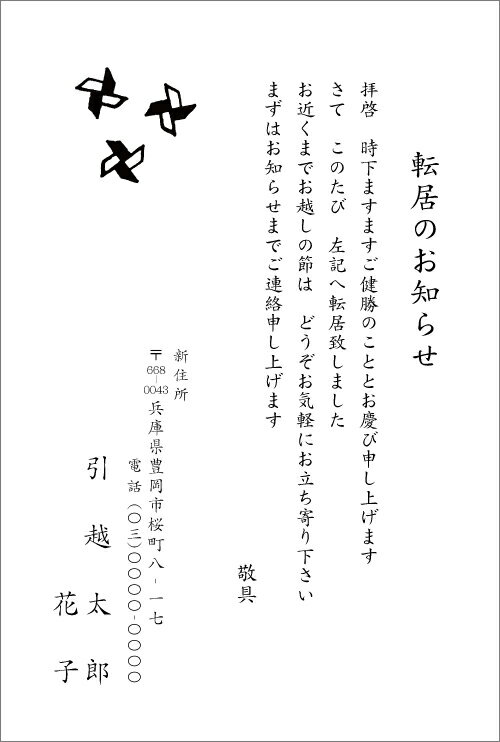 転居のお知らせ
拝啓　時下ますますご健勝のこととお慶び申し上げます
さて　このたび　左記へ転居致しました
お近くまでお越しの節は　どうぞお気軽にお立ち寄り下さい
まずはお知らせまでご連絡申し上げます
敬具
新住所
〒668-0043兵庫県豊岡市桜町八-一七
電話（〇三）〇〇〇〇-〇〇〇〇
引越太郎
花子